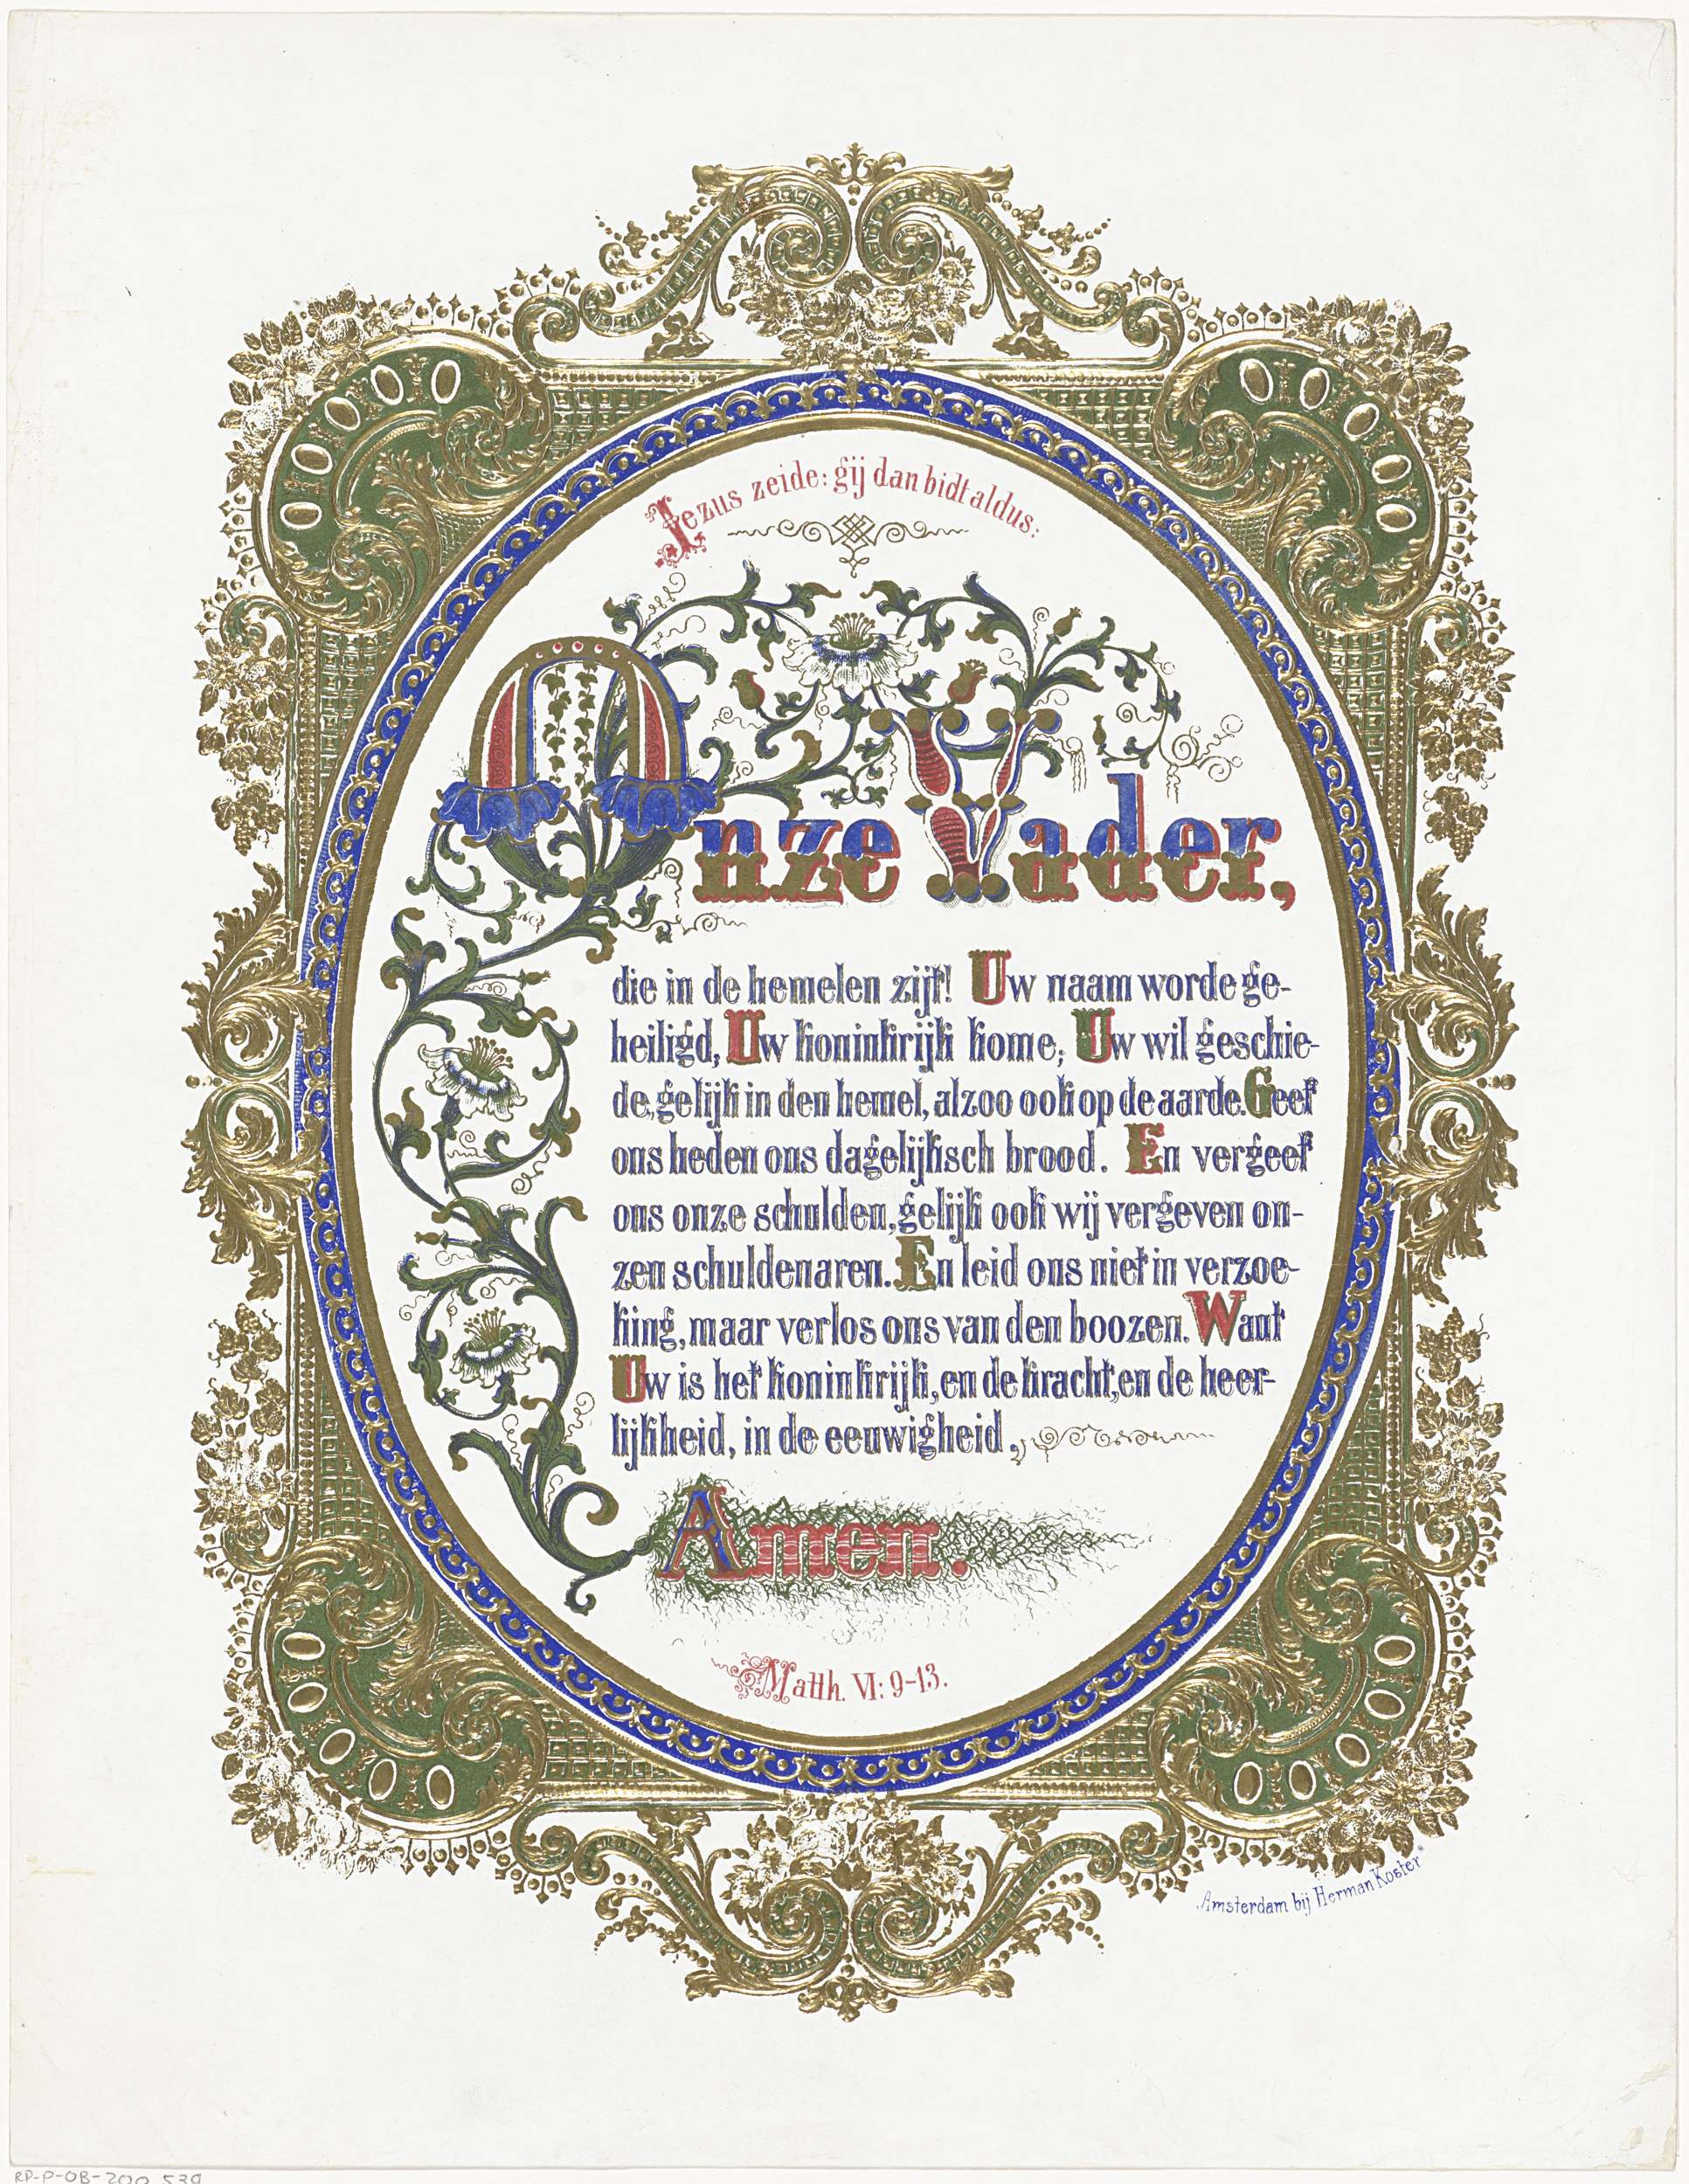 Jezus zeide: gij dan bidt aldus:
Onze Vader,
die in de hemelen zijt! Uw naam worde ge-
heiligd, Uw koninkrijk kome, Uw wil geschie-
de, gelijk in den hemel, alzoo ook op de aarde. Geef
ons heden ons dagelijksch brood. En vergeef
ons onze schulden, gelijk ook wij vergeven on-
zen schuldenaren. En leid ons niet in verzoe-
king, maar verlos ons van den boozen. Want
Uw is het koninkrijk, en de kracht, en de heer-
lijkheid, in de eeuwigheid,
Amen.
Matth. VI: 9-13.
Amsterdam bij Herman Koster
RP-P-OB-200.539